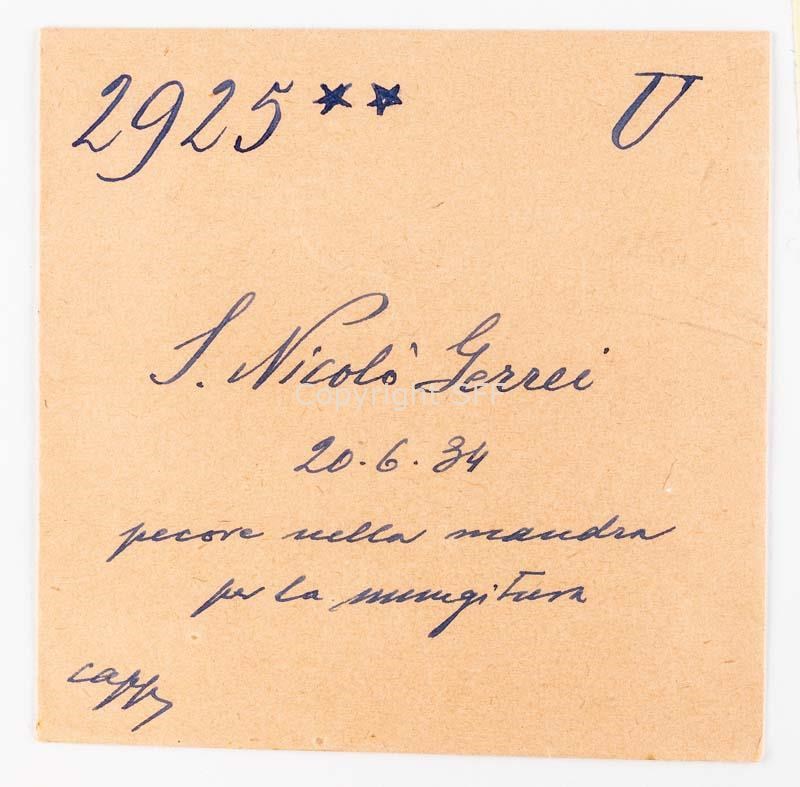 2925 ** U
S. Nicolò Gerrei
Copyright SFF
20.6.34
pecore nella mandra
per la mungitura